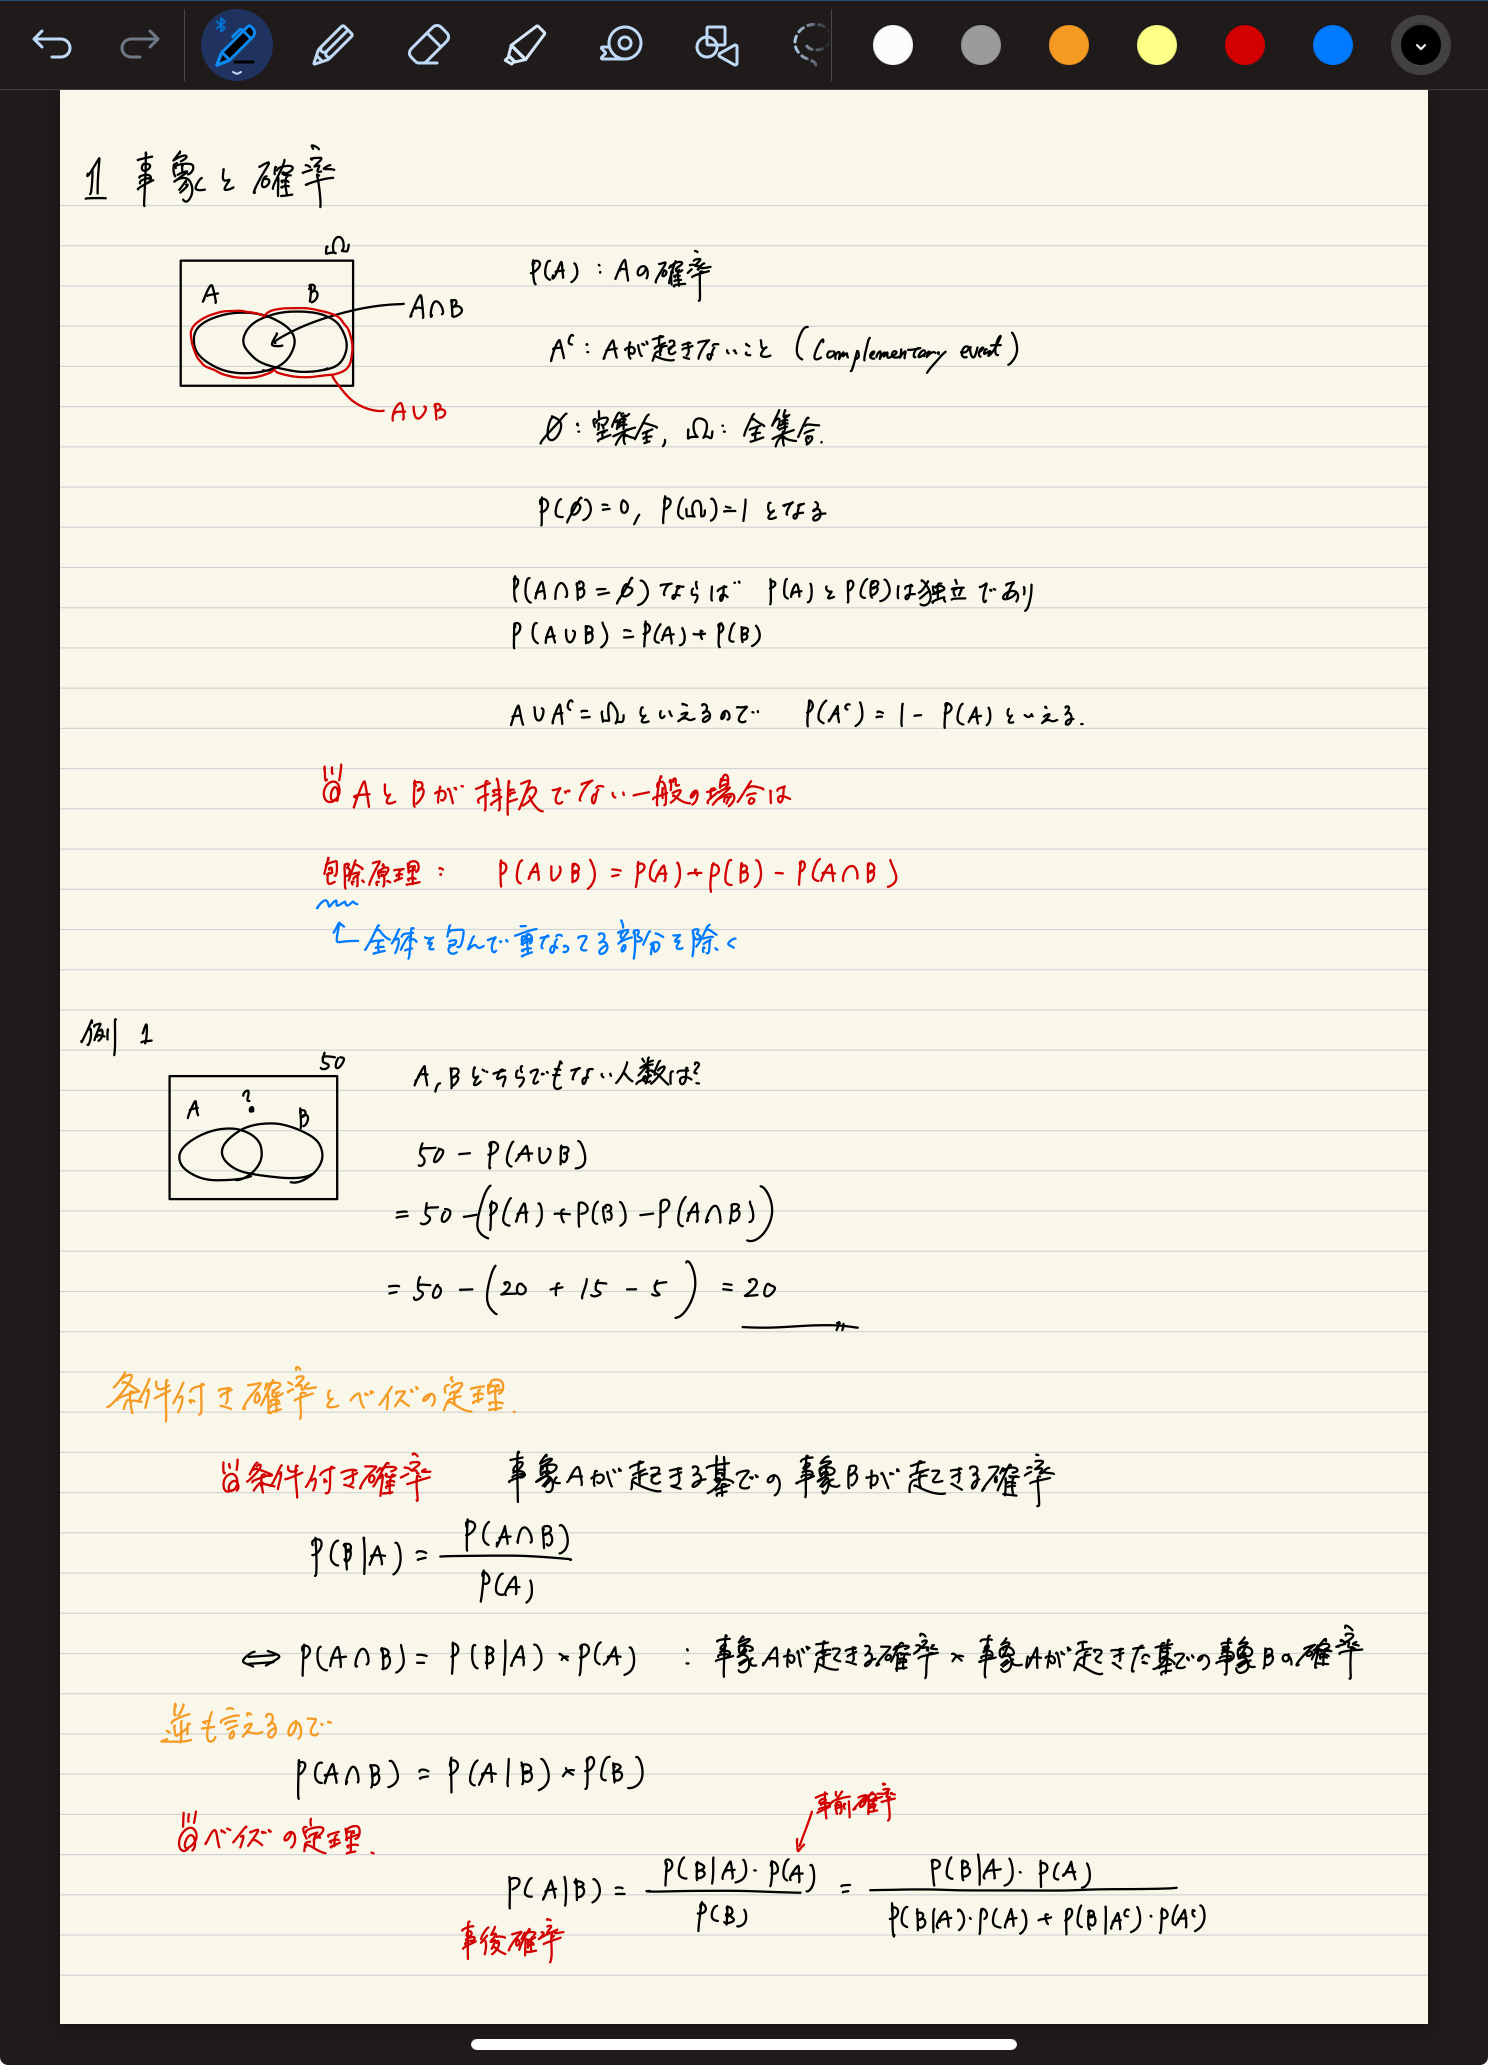 1 事象と確率
Ω
A B
A∩B
A∪B
P(A) : Aの確率
Aᶜ : Aが起きないこと (Complementary event)
∅ : 空集合, Ω : 全集合.
P(∅)=0, P(Ω)=1 となる
P(A∩B=∅)ならば P(A)とP(B)は独立であり
P(A∪B)=P(A)+P(B)
A∪Aᶜ=Ωといえるので P(Aᶜ)=1-P(A)といえる.
AとBが排反でない一般の場合は
包除原理 : P(A∪B)=P(A)+P(B)-P(A∩B)
↑全体を包んで重なってる部分を除く
例 1
50
A ? B
A,Bどちらでもない人数は?
50-P(A∪B)
=50-(P(A)+P(B)-P(A∩B))
=50-(20+15-5)=20
条件付き確率とベイズの定理.
条件付き確率 事象Aが起きる基での事象Bが起きる確率
P(B|A)=P(A∩B)/P(A)
⇔ P(A∩B)=P(B|A)×P(A) : 事象Aが起きる確率×事象Aが起きた基での事象Bの確率
逆も言えるので
P(A∩B)=P(A|B)×P(B)
事前確率
ベイズの定理.
P(A|B)=P(B|A)·P(A)/P(B)=P(B|A)·P(A)/P(B|A)·P(A)+P(B|Aᶜ)·P(Aᶜ)
事後確率